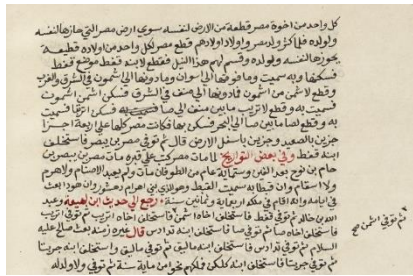 كل واحد من اخوة مصر قطعة من الارض لنفسه سوى ارض مصر التى حازها لنفسه
ولولده فلما كثر ولد مصر واولاد اولادهم قطع مصر لكل واحد من اولاده قطيعة
يحوزها لنفسه ولولده وقسم لهم هذا النيل فقطع لابنه قفط موضع قفط
فسكنها وبه سميت وما فوقها الى اسوان وما دونها الى اشمون فى الشرق والغرب
وقطع لاشمن من اشمون فما دونها الى منف فى الشرق فسكن اشمن اشمون
فسميت به وقطع لاتريب ما بين منف الى صا فسكن اتريب فسميت
به وقطع لصا ما بين صا الى البحر فسكن بها فكانت مصر كلها على اربعة اجزا
جزين بالصعيد وجزين باسفل الارض قال ثم توفى مصر بن بيصر فاستخلف
ابنه قفط وفى بعض التواريخ لما مات مصر كتب على قبره مات مصر بن بيصر بن
حام بن نوح بعد الفين وستماية عام من الطوفان مات ولم يعبد الاصنام ولا هرم
ولا اسقام وان قبطا به سميت القبط وهو الذى بنى اهرام دهشور وان هودا بعث
فى ايامه واقام فى ملكه اربعماية وثمانين سنة رجع الى حديث ابن لهيعة وعبد
الله بن خالد ثم توفى قفط فاستخلف اخاه اشمن فاستخلف اخاه اتريب ثم توفى اتريب
فاستخلف اخاه صا ثم توفى صا فاستخلف ابنه تدارس قال غيره زمنه بعث صالح عليه
السلام ثم توفى تدارس فاستخلف ابنه ماليق ثم توفى ماليق واستخلف ابنه خربتا
ثم توفى خربتا فاستخلف ابنه كلكن فملكهم نحو من ماية سنة ثم توفى ولا ولد له
ثم توفى اشمن صح